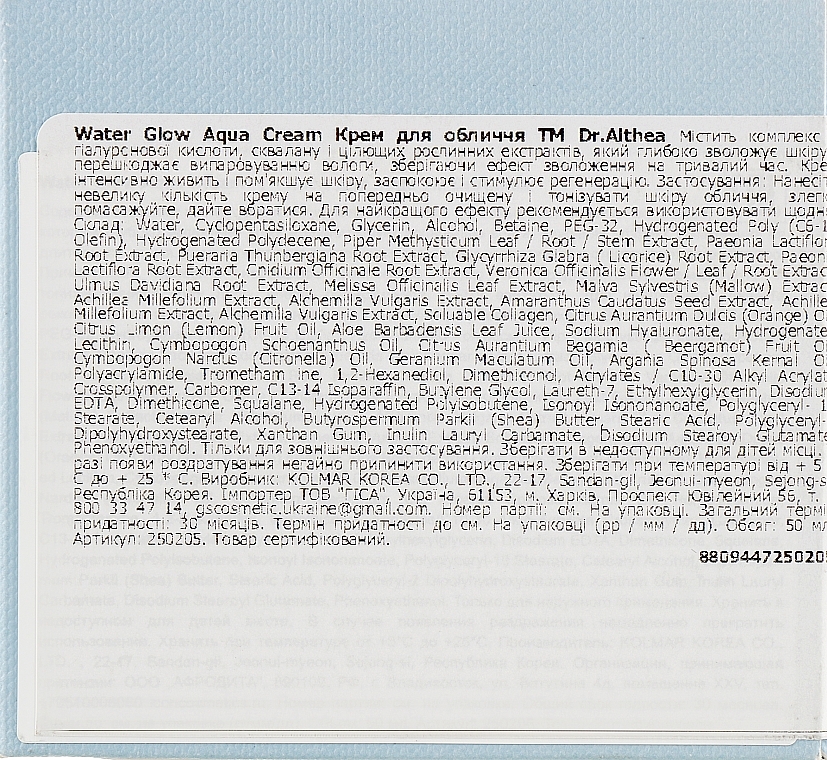 Water Glow Aqua Cream Крем для обличчя ТМ Dr.Althea Містить комплекс
гіалуронової кислоти, сквалану і цілющих рослинних екстрактів, який глибоко зволожує шкіру
перешкоджає випаровуванню вологи, зберігаючи ефект зволоження на тривалий час. Кре
інтенсивно живить і пом'якшує шкіру, заспокоює і стимулює регенерацію. Застосування: Нанесіт
невелику кількість крему на попередньо очищену і тонізувати шкіру обличчя, злег
помасажуйте, дайте вбратися. Для найкращого ефекту рекомендується використовувати щодн
Склад: Water, Cyclopentasiloxane, Glycerin, Alcohol, Betaine, PEG-32, Hydrogenated Poly (C6-1
Olefin), Hydrogenated Polydecene, Piper Methysticum Leaf / Root / Stem Extract, Paeonia Lactiflor
Root Extract, Pueraria Thunbergiana Root Extract, Glycyrrhiza Glabra ( Licorice) Root Extract, Paeon
Lactiflora Root Extract, Cnidium Officinale Root Extract, Veronica Officinalis Flower / Leaf / Root Extrac
Ulmus Davidiana Root Extract, Melissa Officinalis Leaf Extract, Malva Sylvestris (Mallow) Extrac
Achillea Millefolium Extract, Alchemilla Vulgaris Extract, Amaranthus Caudatus Seed Extract, Achille
Millefolium Extract, Alchemilla Vulgaris Extract, Soluable Collagen, Citrus Aurantium Dulcis (Orange) O
Citrus Limon (Lemon) Fruit Oil, Aloe Barbadensis Leaf Juice, Sodium Hyaluronate, Hydrogenate
Lecithin, Cymbopogon Schoenanthus Oil, Citrus Aurantium Begamia ( Beergamot) Fruit O
Cymbopogon Nardus (Citronella) Oil, Geranium Maculatum Oil, Argania Spinosa Kernal O
Polyacrylamide, Trometham ine, 1,2-Hexanediol, Dimethiconol, Acrylates / C10-30 Alkyl Acrylat
Crosspolymer, Carbomer, C13-14 Isoparaffin, Butylene Glycol, Laureth-7, Ethylhexylglycerin, Disodiu
EDTA, Dimethicone, Squalane, Hydrogenated Polyisobutene, Isonoyl Isononanoate, Polyglyceryl- 1
Stearate, Cetearyl Alcohol, Butyrospermum Parkii (Shea) Butter, Stearic Acid, Polyglyceryl-
Dipolyhydroxystearate, Xanthan Gum, Inulin Lauryl Carbamate, Disodium Stearoyl Glutamate
Phenoxyethanol. Тільки для зовнішнього застосування. Зберігати в недоступному для дітей місці.
разі появи роздратування негайно припинити використання. Зберігати при температурі від + 5
С до + 25 ° С. Виробник: KOLMAR KOREA CO., LTD., 22-17, Sandan-gil, Jeonui-myeon, Sejong-s
Республіка Корея. Імпортер ТОВ "ГІСА", Україна, 61153, м. Харків, Проспект Ювілейний 56, т.
800 33 47 14, gscosmetic.ukraine@gmail.com. Номер партії: см. На упаковці. Загальний термі
придатності: 30 місяців. Термін придатності до см. На упаковці (рр / мм / дд). Обсяг: 50 мл
Артикул: 250205. Товар сертифікований.
8809447250205